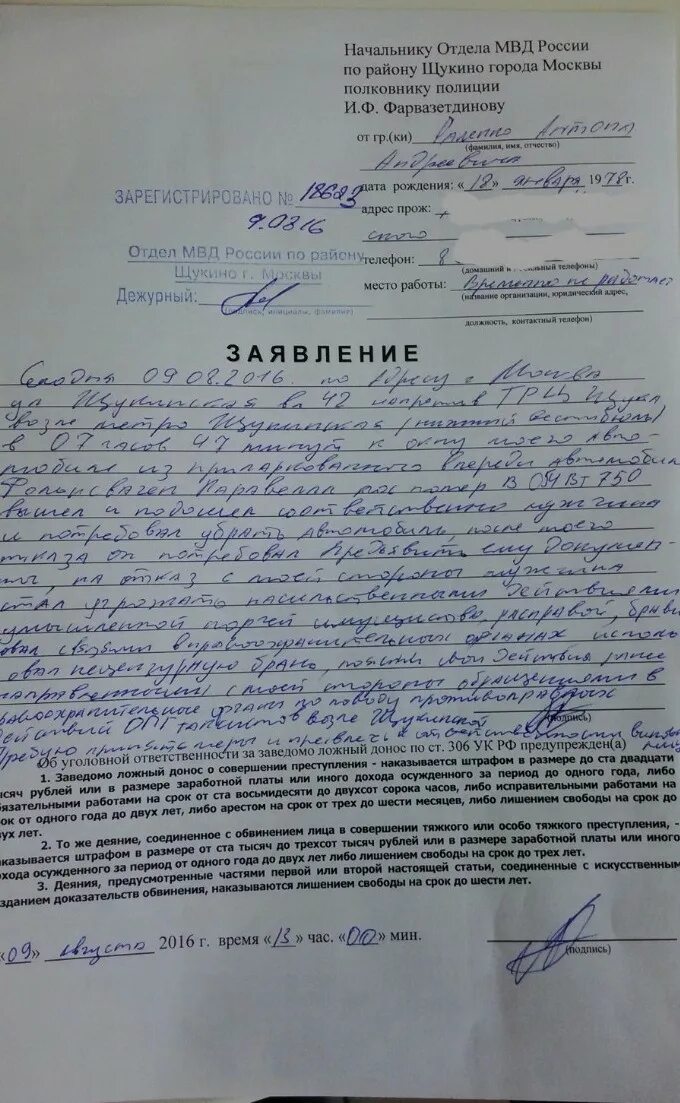 Начальнику Отдела МВД России
по району Щукино города Москвы
полковнику полиции
И.Ф. Фарвазетдинову
от гр.(ки) Антона
(фамилия, имя, отчество)
Андреевича
дата рождения: «18» января 1978г.
ЗАРЕГИСТРИРОВАНО № 18623
адрес прож:
9.0816
ского
Отдел МВД России по району
Щукино г. Москвы
телефон: 8
(домашний и мобильный телефоны)
Дежурный:
(подпись, инициалы, фамилия)
место работы: Временно не работает
(название организации, юридический адрес,
должность, контактный телефон)
ЗАЯВЛЕНИЕ
Сегодня 09.08.2016. по Адресу г. Москва
ул Щукинская вл 42 напротив ТРЦ Щука
возле метро Щукинская (нижний вестибюль)
в 07 часов 47 минут к окну моего Авто-
мобиля из припаркованного впереди Автомобиля
Фольксваген Каравелла гос номер В 094 Вт 750
вышел и подошел соответственно мужчина
и потребовал убрать Автомобиль, после моего
отказа он потребовал Предъявить ему Докумен-
ты, на отказ с моей стороны мужчина
стал угрожать насильственными Действиями
умышленной порчей имущества, расправой, брави
овал связями в правоохранительных органах исполь
овал нецензурную брань, пояснил мои Действия ранее
направленными с моей стороны обращениями в
равоохранительные органы по поводу противоправных
Действий ОПГ таксистов возле Щукинской
(подпись)
Требую принять меры и привлечь к ответственности виновных
лиц
Об уголовной ответственности за заведомо ложный донос по ст. 306 УК РФ предупрежден(а)
1. Заведомо ложный донос о совершении преступления - наказывается штрафом в размере до ста двадцати
тысяч рублей или в размере заработной платы или иного дохода осужденного за период до одного года, либо
обязательными работами на срок от ста восьмидесяти до двухсот сорока часов, либо исправительными работами на
срок от одного года до двух лет, либо арестом на срок от трех до шести месяцев, либо лишением свободы на срок до
вух лет.
2. То же деяние, соединенное с обвинением лица в совершении тяжкого или особо тяжкого преступления, -
наказывается штрафом в размере от ста тысяч до трехсот тысяч рублей или в размере заработной платы или иного
дохода осужденного за период от одного года до двух лет либо лишением свободы на срок до трех лет.
3. Деяния, предусмотренные частями первой или второй настоящей статьи, соединенные с искусственным
созданием доказательств обвинения, наказываются лишением свободы на срок до шести лет.
«09» августа 2016 г. время «13» час. «00» мин.
(подпись)